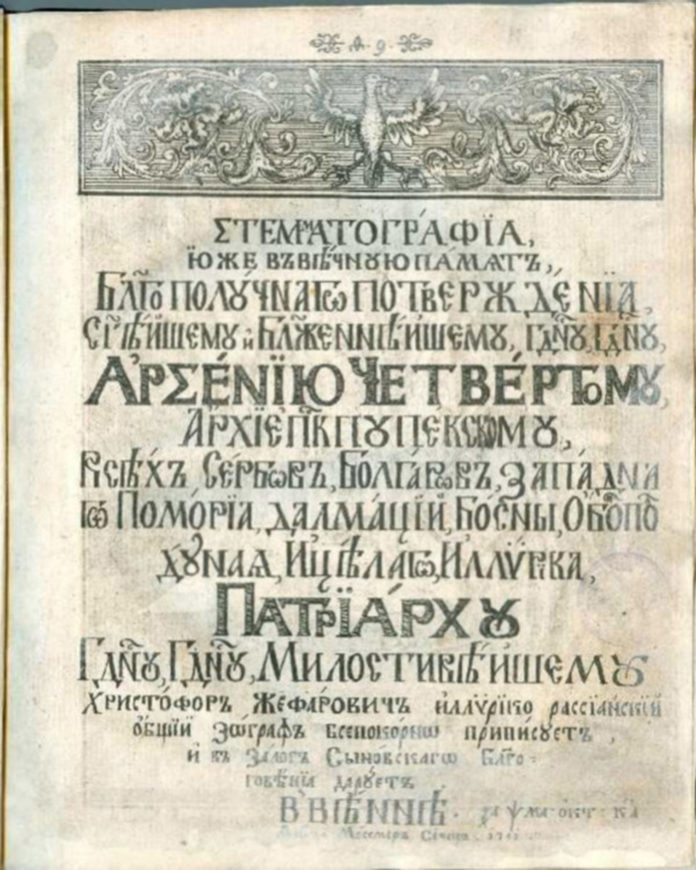 9
СТЕММАТОГРАФІА,
ЮЖЕ ВЪ ВѢЧНУЮ ПАМАТЬ,
БЛГ̃О ПОЛꙊ́ЧНАГѠ ПОТВЕРЖДЕ́НЇА,
И҆ БЛЖ҃ЕННѢЙШЕМꙊ, ГДⷭ҇НꙊ, ГДⷭ҇НꙊ,
АРСЕ́НЇЮ ЧЕТВЕ́РТОМꙊ,
АРХЇЕПⷭ҇КПꙊ ПЕ́КСКОМꙊ,
ВСѢ́ХЪ СЕ́РБѠВЪ, БОЛГА́РѠВЪ, ЗАПА́ДНА
ГѠ ПОМО́РЇА, ДАЛМА́ЦЇЙ, БО́СНЫ, ОБО́ПО́
ДꙊНАѦ, И ЦѢ́ЛАГѠ, ИЛЛѴ́РІКА,
ПАТРЇА́РХꙊ
ГДⷭ҇НꙊ, ГДⷭ҇НꙊ, МИЛОСТИВѢ́ЙШЕМꙊ
ХРИСТО́ФОРЪ ЖЕФА́РОВИЧЪ иллѵрїко рассїанскїй
о́бщїй зѡ́графъ всепоко́рнѡ припи́сꙋетъ,
и въ Зало́гъ Сыно́вскагѡ Блг̃о-
говѣ́нїа дарꙋетъ
В ВІЕ́ННѢ. ѱма окт ка